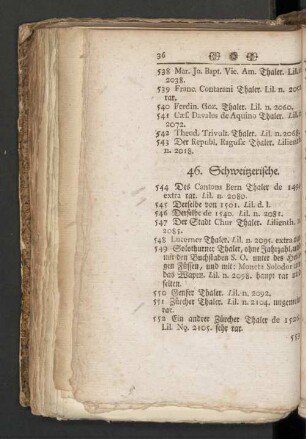 36
538 Mar. Jo. Bapt. Vic. Am. Thaler. Lil. n.
2038.
539 Franc. Contarani Thaler. Lil. n.
rar.
540 Ferdin. Gox. Thaler. Lil. n. 2060.
541 Cæs. Davalos de Aquino Thaler. Lil.
2072.
542 Theod. Trivult. Thaler. Lil. n. 2068.
543 Der Republ. Raguse Thaler. Lilienth.
n. 2018.
46. Schweitzerische.
544 Des Cantons Bern Thaler de
extra rar. Lil. n. 2080.
545 Derselbe von 1501. Lil. d. l.
546 Derselbe de 1540. Lil. n. 2081.
547 Der Stadt Chur Thaler. Lilienth.
2085.
548 Lucerner Thaler. Lil. n. 2095. extra
549 Solothurner Thaler, ohne Jahrzahl,
mit den Buchstaben S. O. unter des
gen Füssen, und mit: Moneta Solodor
das Wapen. Lil. n. 2098. haupt rar
selten.
550 Genfer Thaler. Lil. n. 2092.
551 Zürcher Thaler. Lil. n. 2104. ungemein
rar.
552 Ein andrer Zürcher Thaler de
Lil. No. 2105. sehr rar.